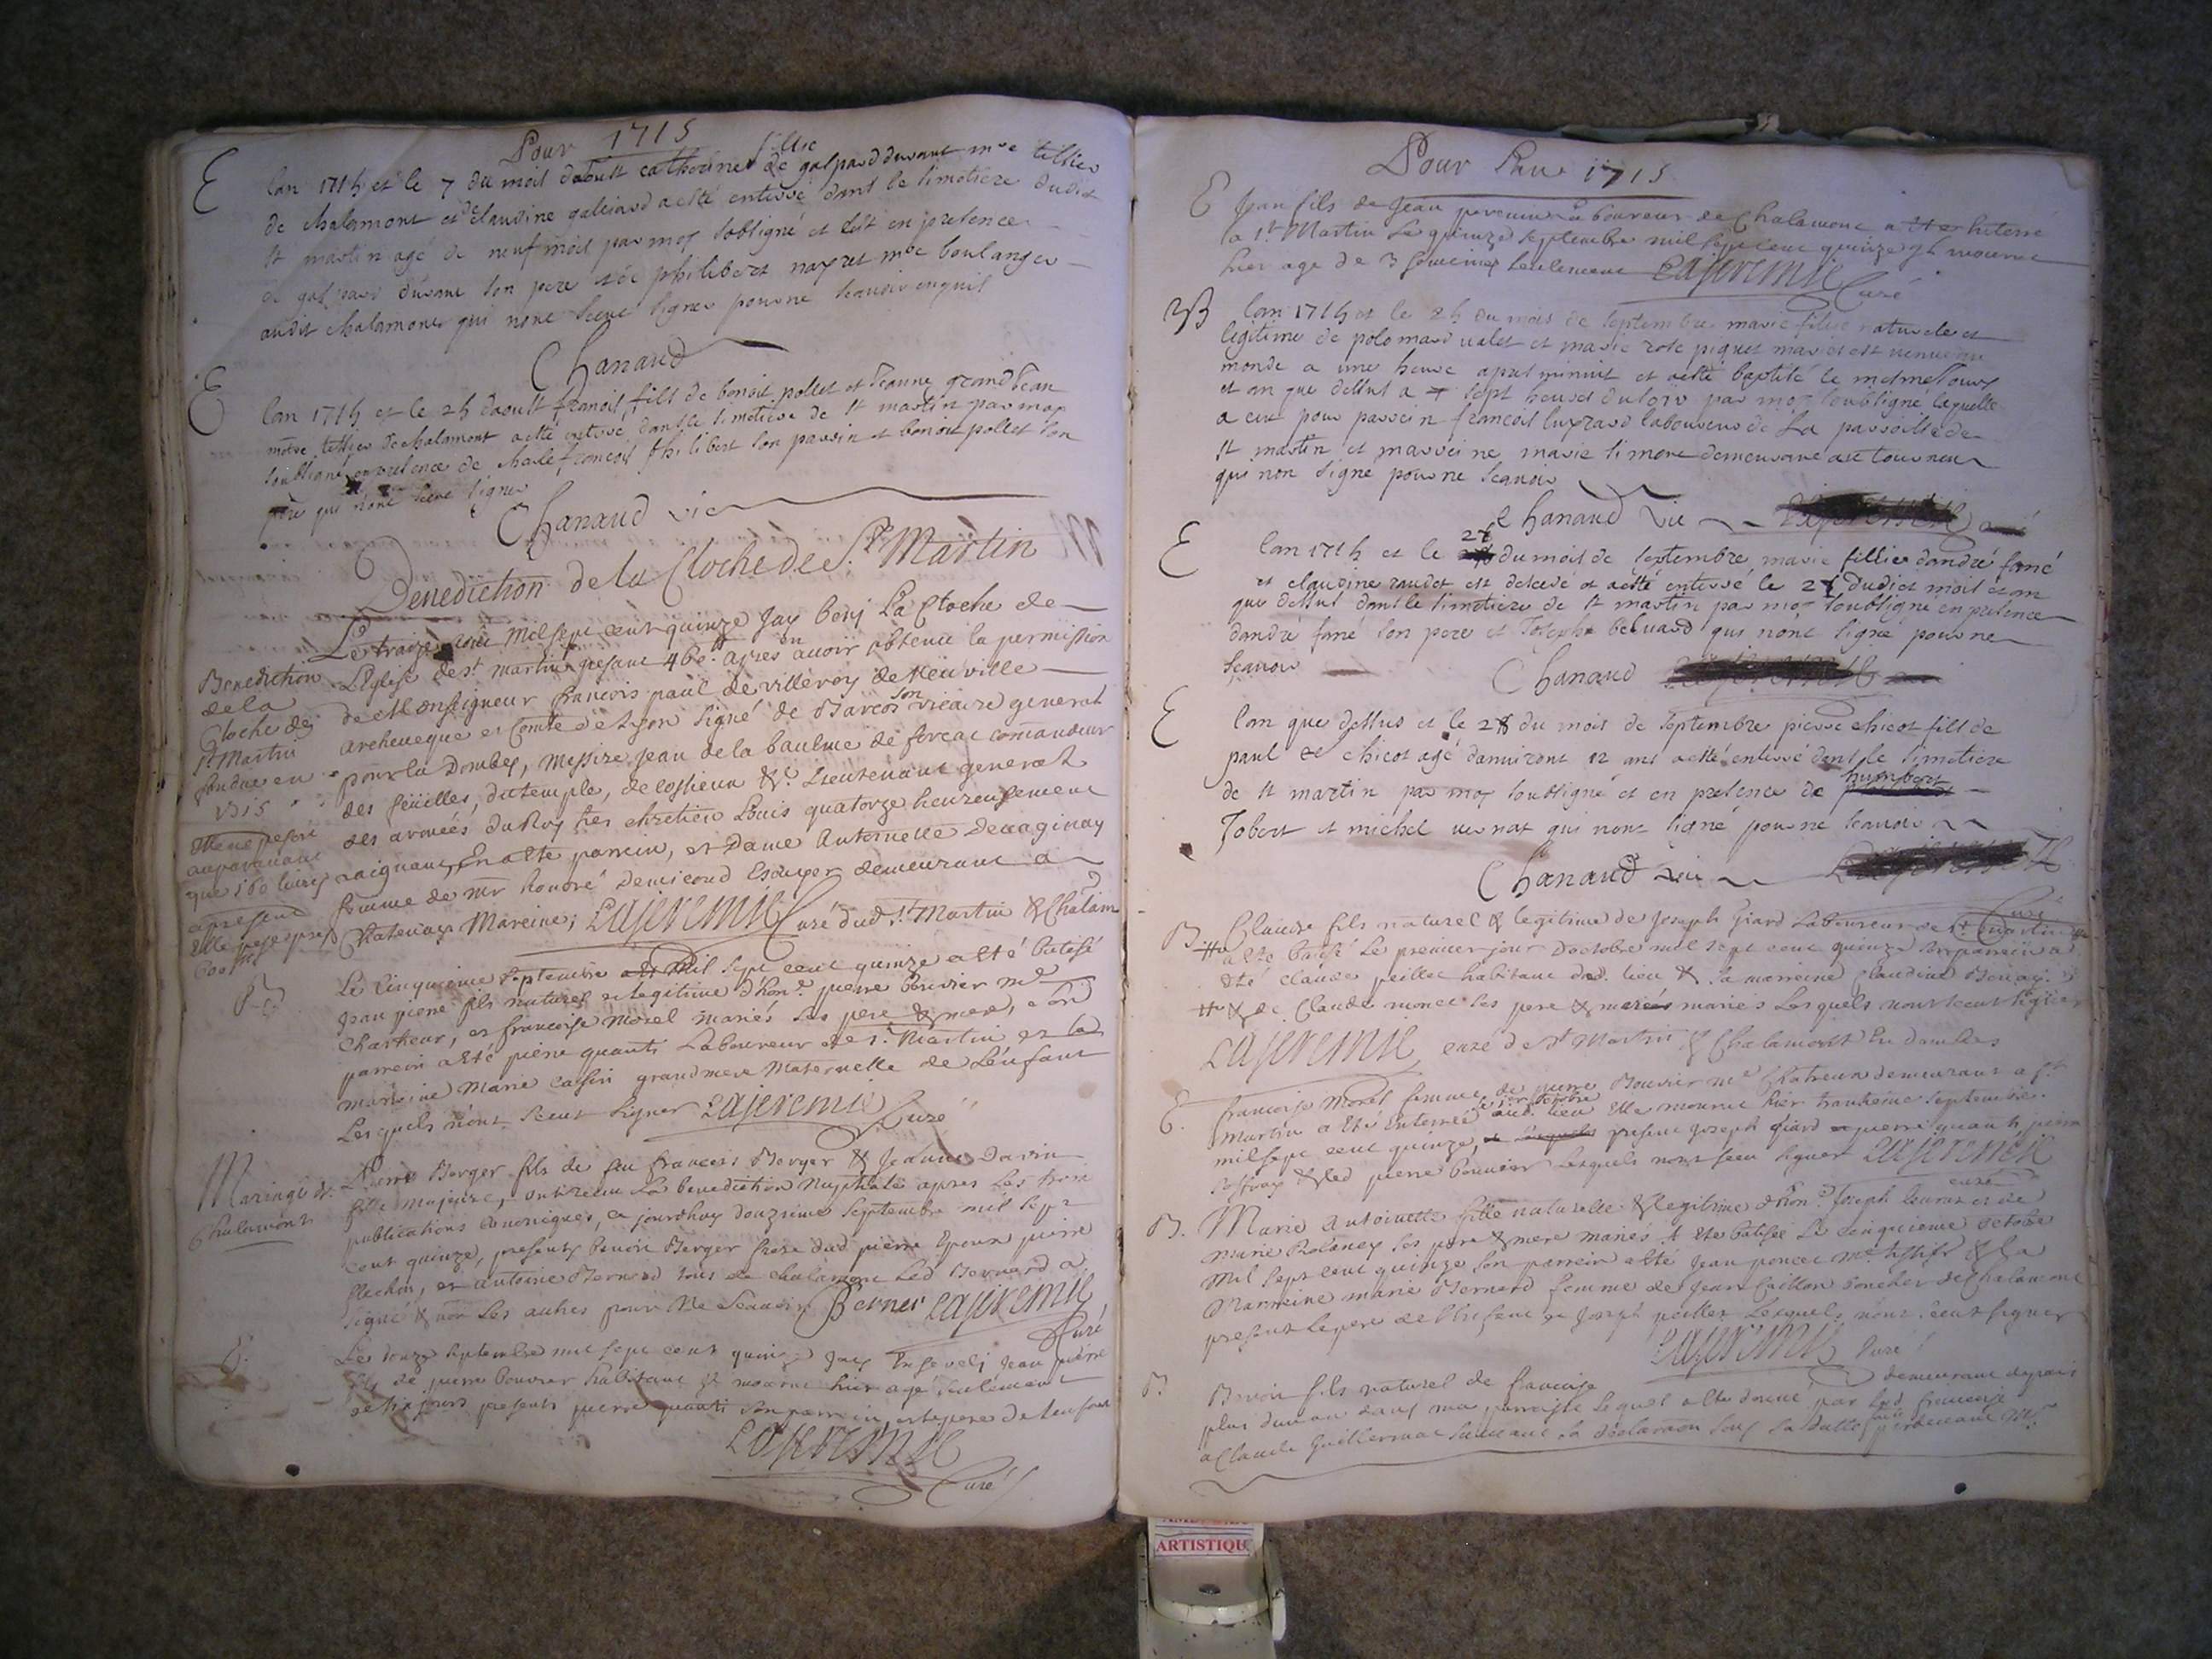 Pour 1715
E
lan 1715 et le 7 du mois daoust catherine fillie de gaspard durant mre tissier
de chalamont et claudine galliard a esté enterré dans le simetiere dudit
st martin agé de neuf mois par moy soubsigné et cest en presence
de gaspard durant son pere et de philibert nayret mre boulanger
audit chalamont qui nont sceut signer pour ne scavoir enquis
Chanaud
E
lan 1715 et le 25 daoust franois fils de benoit pollet et Jeanne grand Jean
maitre tissier de chalamont a esté enterré dans le simetiere de st martin par moy
soubsigné en presence de francois philibert son parrin et benoit pollet son
pere qui nont sceut signer
Chanaud vic
Benediction de la Cloche de St Martin
Benediction
de la
Cloche de
St Martin
fondue en
1715
Elle ne pesoit
auparavant
que 160 livres
a present
Elle pese apres
Le traize mil sept cent quinze Jay beni La Cloche de
L'Eglise de st martin pesant 460 tt apres en avoir obtenu la permission
de Monseigneur francois paul de villeroy de Neuville
archeveque et Comte de Lyon signé de son vicaire general
pour la Dombes, Messire Jean de la baulme de forsac comandeur
des feüilles, du temple, de &c. Lieutenant general
des armées du Roy tres chretien Louis quatorze heureusement
raignant, En a esté parrein, et Dame Antoinette
femme de mr honoré Demicoud Escuyer demeurant a
Chatenay Mareine, Lajeremie Curé dud St Martin & Chalam
B
Le cinquieme septembre mil sept cent quinze a esté batisé
Jean piere fils naturel et legitime d'hon. pierre bouvier me
Charheur, et francoise Morel mariés ses pere & mere, son
parrein a esté piere quanti Laboureur de st Martin et la
mareine Marie cassin grandmere Maternelle de L'enfant
Lesquels n'ont sceut signer Lajeremie Curé
Mariage de
Chalamont
Pierre Berger fils de feu francois Berger & Jeanne Davin
fille majeure, ont receu La benediction Nuptiale apres Les trois
publications canoniques, ce jourdhuy douzieme septembre mil sept
cent quinze, presents benoit Berger frere dud pierre Epoux pierre
flechin, et antoine Bernard tous de chalamont Led Bernard a
signé & non Les autres pour Ne scavoir Berner Lajeremie
Curé
E.
Le douze septembre mil sept cent quinze Jay Enseveli Jean pierre
fils de pierre bouvier habitant il mourut hier agé seulement
de six jours presents pierre quanti son parrein, et le pere de lenfant
Lajeremie
Curé
Pour Lan 1715
E Jean fils de Jean Laboureur de Chalamont a esté enterré
a st Martin Le quinze septembre mil sept cent quinze il mourut
hier agé de 3 semaines seulement Lajeremie
Curé
B lan 1715 et le 25 du mois de septembre marie fillie naturele et
legitime de polomard valet et marie rose piquet mariés est venue au
monde a une heure apres minuit et a esté baptisé le mesme Jour
et an que dessus a sept heures du soir par moy soubsigné laquelle
a eut pour parrein francois luyrard laboureur de La parroisse de
st martin et marreine marie simone demeurant au tourneu
qui non signé pour ne scavoir
Chanaud vic
E
lan 1715 et le 27 du mois de septembre marie fillie dandré fané
et claudine raudet est decedé et a esté enterré le 28 dudict mois et an
que dessus dans le simetiere de st martin par moy soubsigné en presence
dandré fané son pere et Joseph beluard qui nont signé pour ne
scavoir
Chanaud
E
lan que dessus et le 28 du mois de septembre pierre chicot fils de
paul chicot agé danviront 12 ans a esté enterré dans le simetiere
de st martin par moy soubsigné et en presence de humbert
Jobert et michel vernat qui nont signé pour ne scavoir
Chanaud vic
Curé
B Claude fils naturel & legitime de Joseph Giard Laboureur de st martin
a esté batisé Le premier jour Doctobre mil sept cent quinze son parrein a
eté claude peillet habitant dud. lieu & sa marreine claudine
& de Claude monet ses pere & mere mariés Lesquels nont sceut signer
Lajeremie curé de st Martin & Chalamont En dombes
E. francoise Morel femme de pierre Bouvier me Chatreur demeurant a st
Martin a eté enterrée le 1er octobre aud. lieu Elle mourut hier trantieme septembre
mil sept cent quinze, present Joseph Giard pierre quanti
& led pierre bouvier Lesquels nont sceu signer Lajeremie
curé
B. Marie Antoinette fille naturelle & legitime d'hon. Joseph et de
marie Rolancy ses pere & mere mariés A eté batisée Le cinquieme octobre
mil sept cent quinze son parrein a esté Jean poncet me tissier & la
Marreine marie Bernard femme de Jean Caillon boucher de Chalamont
present le pere de et Joseph peillet Lesquels nont sceut signer
Lajeremie Curé
B. Benoit fils naturel de francoise demeurant depuis
plus dun an dans ma parroisse Lequel a esté donné par lad francoise
a Claude Guillermat suivant sa declaration sous sa datte faite pardevant Mr
ARTISTIQU